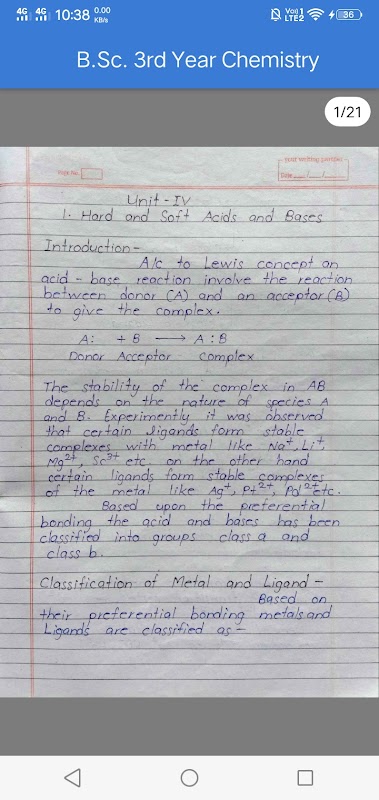 4G 4G 10:38 0.00 KB/s Vo) 1 LTE2 36
B.Sc. 3rd Year Chemistry
1/21
Page No.
Date
Unit - IV
1. Hard and Soft Acids and Bases
Introduction -
A/c to Lewis concept an
acid - base reaction involve the reaction
between donor (A) and an acceptor (B)
to give the complex.
A: + B → A : B
Donor Acceptor complex
The stability of the complex in AB
depends on the nature of species A
and B. Experimently it was observed
that certain ligands form stable
complexes with metal like Na⁺, Li⁺,
Mg²⁺, Sc³⁺ etc on the other hand
certain ligands form stable complexes
of the metal like Ag⁺, Pt²⁺, Pd²⁺ etc.
Based upon the preferential
bonding the acid and bases has been
classified into groups class a and
class b.
Classification of Metal and Ligand -
Based on
their preferential bonding metals and
Ligands are classified as -